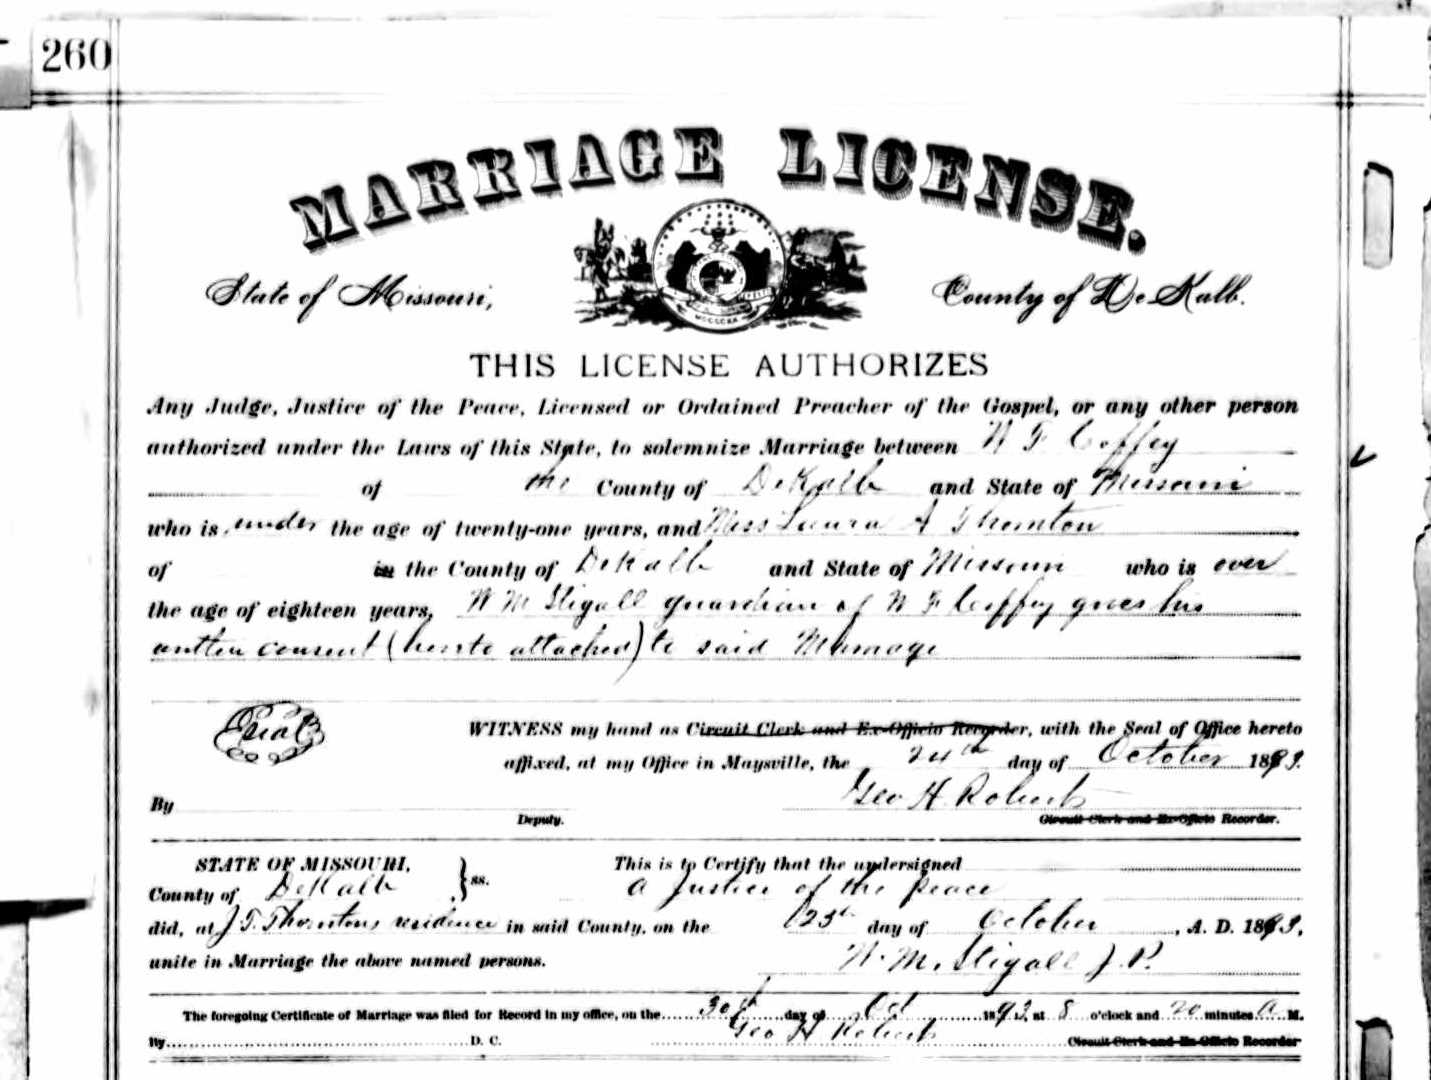 260
MARRIAGE LICENSE.
State of Missouri, County of DeKalb.
THIS LICENSE AUTHORIZES
Any Judge, Justice of the Peace, Licensed or Ordained Preacher of the Gospel, or any other person
authorized under the Laws of this State, to solemnize Marriage between W F Coffey
of the County of DeKalb and State of Missouri
who is under the age of twenty-one years, and Miss Laura A Thornton
of in the County of DeKalb and State of Missouri who is over
the age of eighteen years, W M Stigall guardian of W F Coffey gives his
written consent (hereto attached) to said Marriage
Seal WITNESS my hand as Circuit Clerk and Ex-Officio Recorder, with the Seal of Office hereto
affixed, at my Office in Maysville, the 24th day of October 1893.
Geo H. Roberts
By Deputy. Circuit Clerk and Ex-Officio Recorder.
STATE OF MISSOURI, } ss. This is to Certify that the undersigned
County of DeKalb a Justice of the Peace
did, at J. T. Thorntons residence in said County, on the 25th day of October, A. D. 1893,
unite in Marriage the above named persons. W. M. Stigall J. P.
The foregoing Certificate of Marriage was filed for Record in my office, on the 30th day of Oct 1893, at 8 o'clock and 20 minutes A M.
By D. C. Geo H Roberts Circuit Clerk and Ex-Officio Recorder